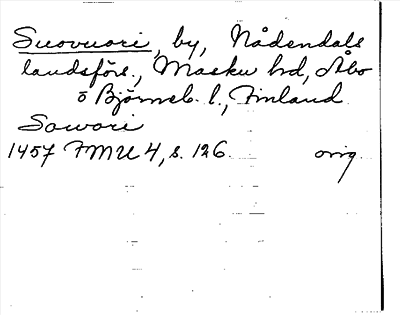 Suovuori, by, Nådendals
landsförs., Masku hd, Åbo
o Björneb. l., Finland
Sowori
1457 FMU 4, s. 126 orig.